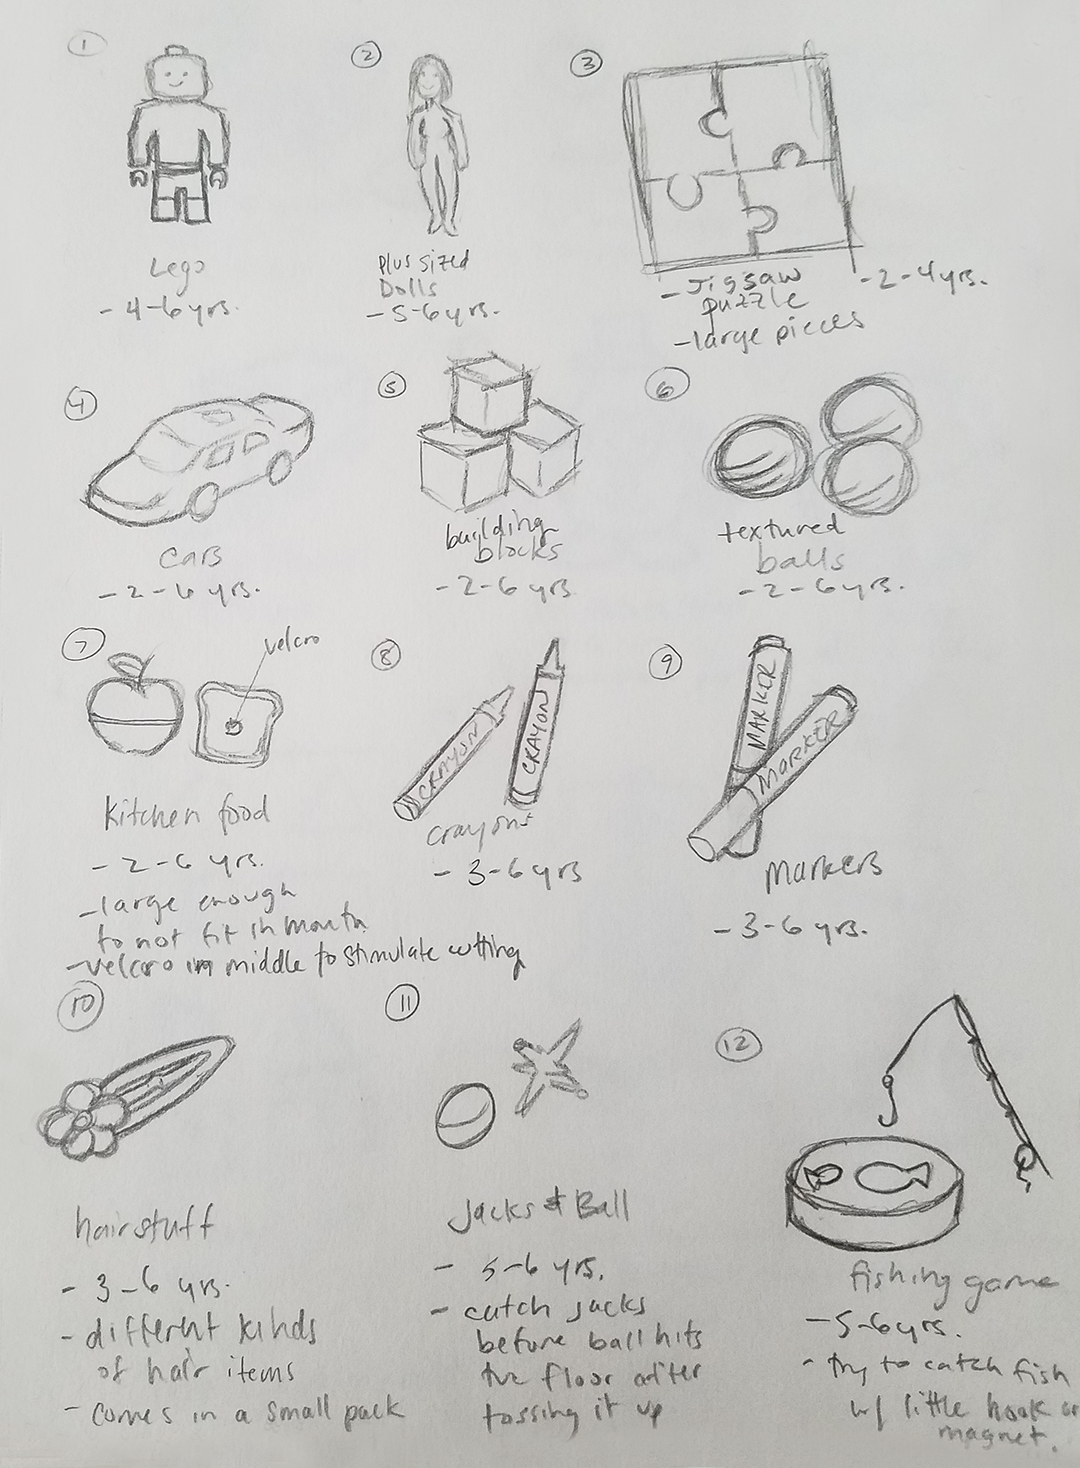 1
Lego
- 4-6 yrs.
2
Plus sized
Dolls
- 5-6 yrs.
3
- Jigsaw
puzzle
- large pieces
- 2-4 yrs.
4
Cars
- 2-6 yrs.
5
building
blocks
- 2-6 yrs
6
textured
balls
- 2-6 yrs.
7
velcro
Kitchen food
- 2-6 yrs.
- large enough
to not fit in mouth
- velcro in middle to stimulate cutting
8
CRAYON
CRAYON
Crayons
- 3-6 yrs
9
MARKER
MARKER
Markers
- 3-6 yrs.
10
hairstuff
- 3-6 yrs.
- different kinds
of hair items
- comes in a small pack
11
Jacks & Ball
- 5-6 yrs.
- catch jacks
before ball hits
the floor after
tossing it up
12
fishing game
- 5-6 yrs.
- try to catch fish
w/ little hook or
magnet.